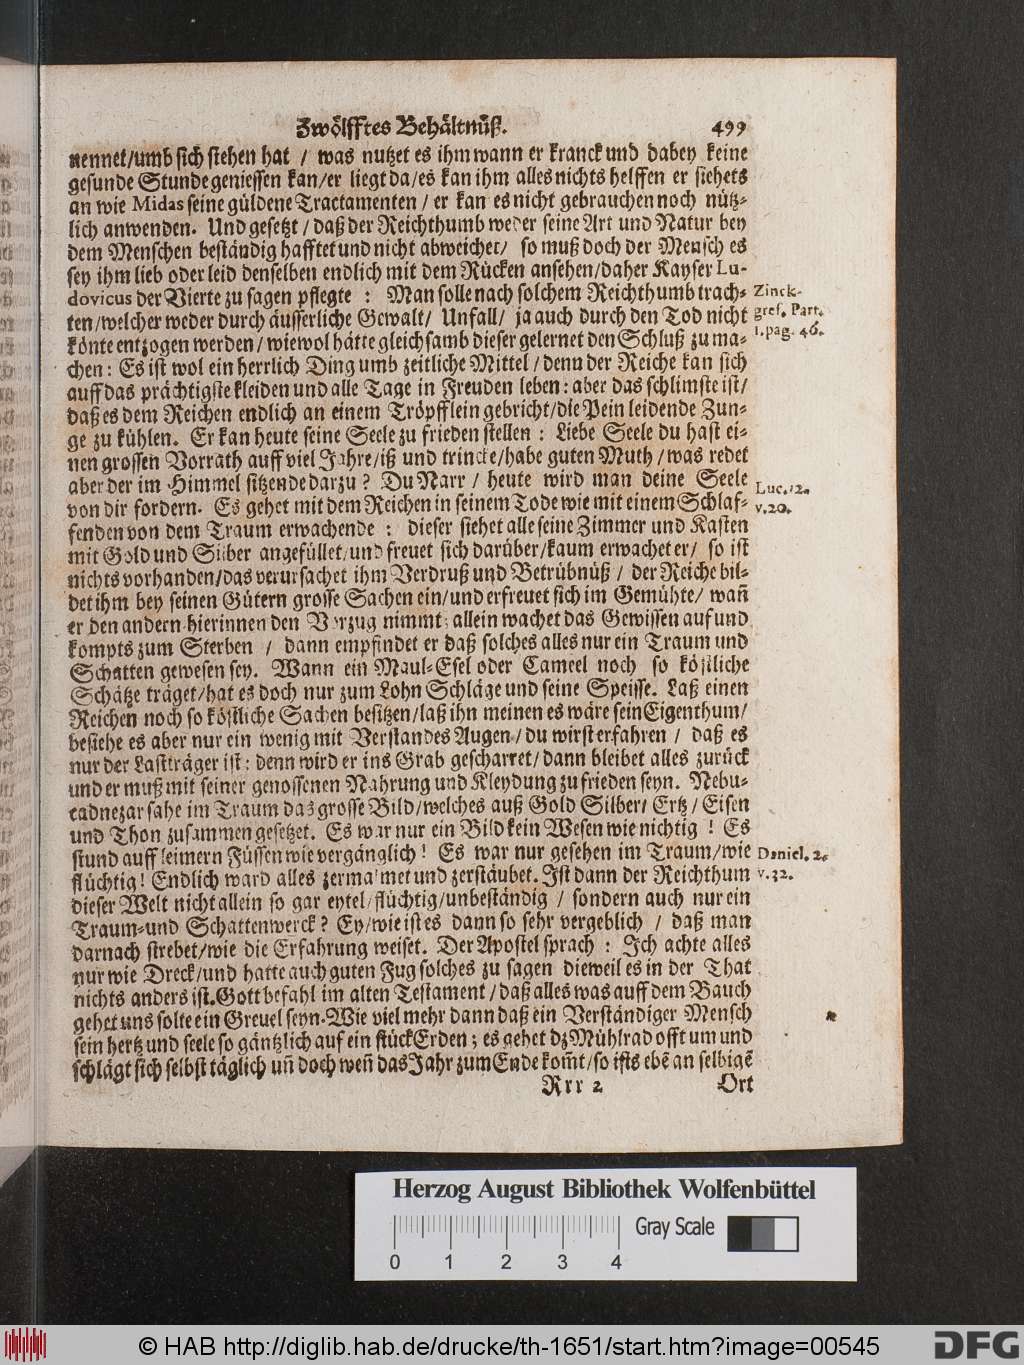 Zwölfftes Behältnüß. 499
nennet/umb sich stehen hat / was nutzet es ihm wann er kranck und dabey keine
gesunde Stunde geniessen kan/er liegt da/es kan ihm alles nichts helffen er siehets
an wie Midas seine güldene Tractamenten / er kan es nicht gebrauchen noch nütz-
lich anwenden. Und gesetzt / daß der Reichthumb weder seine Art und Natur bey
dem Menschen beständig hafftet und nicht abweichet/ so muß doch der Mensch es
sey ihm lieb oder leid denselben endlich mit dem Rücken ansehen/daher Kayser Lu-
dovicus der Vierte zu sagen pflegte : Man solle nach solchem Reichthumb trach-
Zinck-
ten/welcher weder durch äusserliche Gewalt/ Unfall/ ja auch durch den Tod nicht
gref. Part.
könte entzogen werden/wiewol hätte gleichsamb dieser gelernet den Schluß zu ma-
1. pag. 46.
chen: Es ist wol ein herrlich Ding umb zeitliche Mittel/denn der Reiche kan sich
auff das prächtigste kleiden und alle Tage in Freuden leben: aber das schlimste ist/
daß es dem Reichen endlich an einem Tröpfflein gebricht/die Pein leidende Zun-
ge zu kühlen. Er kan heute seine Seele zu frieden stellen : Liebe Seele du hast ei-
nen grossen Vorrath auff viel Jahre/iß und trincke/habe guten Muth/was redet
aber der im Himmel sitzende darzu? Du Narr / heute wird man deine Seele
Luc. 12.
von dir fordern. Es gehet mit dem Reichen in seinem Tode wie mit einem Schlaf-
v. 20.
fenden von dem Traum erwachende : dieser siehet alle seine Zimmer und Kasten
mit Gold und Silber angefüllet/und freuet sich darüber/kaum erwachet er/ so ist
nichts vorhanden/das verursachet ihm Verdruß und Betrübnüß / der Reiche bil-
det ihm bey seinen Gütern grosse Sachen ein/und erfreuet sich im Gemühte/ wañ
er den andern hierinnen den Vorzug nimmt; allein wachet das Gewissen auf und
kompts zum Sterben / dann empfindet er daß solches alles nur ein Traum und
Schatten gewesen sey. Wann ein Maul-Esel oder Cameel noch so köstliche
Schätze träget/hat es doch nur zum Lohn Schläge und seine Speisse. Laß einen
Reichen noch so köstliche Sachen besitzen/laß ihn meinen es wäre sein Eigenthum/
besiehe es aber nur ein wenig mit Verstandes Augen/du wirst erfahren / daß es
nur der Lastträger ist: denn wird er ins Grab gescharret/dann bleibet alles zurück
und er muß mit seiner genossenen Nahrung und Kleydung zu frieden seyn. Nebu-
cadnezar sahe im Traum das grosse Bild/welches auß Gold Silber/ Ertz/ Eisen
und Thon zusammen gesetzet. Es war nur ein Bild kein Wesen wie nichtig ! Es
stund auff leimern Füssen wie vergänglich! Es war nur gesehen im Traum/wie
Daniel. 2.
flüchtig! Endlich ward alles zermalmet und zerstäubet. Ist dann der Reichthum
v. 32.
dieser Welt nicht allein so gar eytel/flüchtig/unbeständig / sondern auch nur ein
Traum-und Schattenwerck? Ey/wie ist es dann so sehr vergeblich / daß man
darnach strebet/wie die Erfahrung weiset. Der Apostel sprach : Ich achte alles
nur wie Dreck/und hatte auch guten Fug solches zu sagen dieweil es in der That
nichts anders ist. Gott befahl im alten Testament/daß alles was auff dem Bauch
gehet uns solte ein Greuel seyn. Wie viel mehr dann daß ein Verständiger Mensch
sein hertz und seele so gäntzlich auf ein stück Erden; es gehet dz Mühlrad offt um und
schlägt sich selbst täglich uñ doch weñ das Jahr zum Ende kom̃t/so ists ebē an selbigē
Rrr 2 Ort
Herzog August Bibliothek Wolfenbüttel
Gray Scale
0 1 2 3 4
© HAB http://diglib.hab.de/drucke/th-1651/start.htm?image=00545
DFG